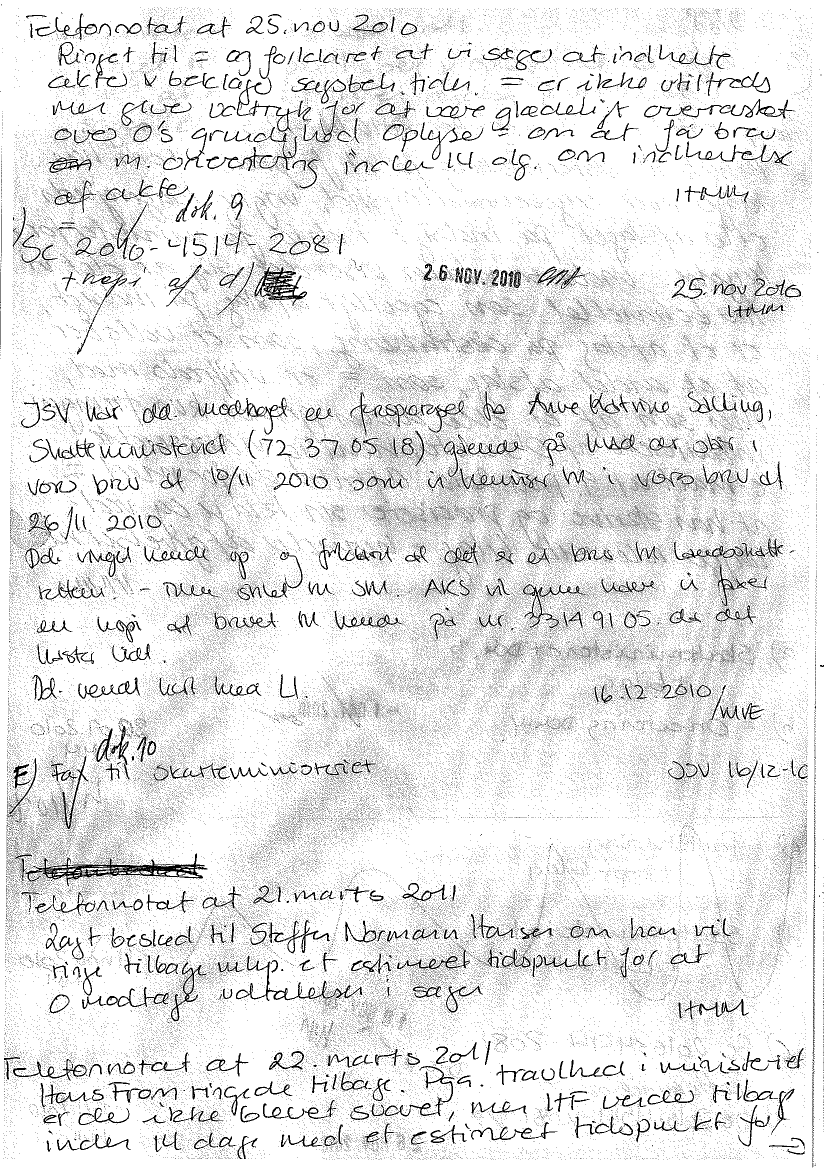 Telefonnotat af 25. nov 2010
Ringet til = og forklaret at vi søger at indhente
akter & beklage sagsbeh.tiden. = er ikke utilfreds
men giver udtryk for at være glædeligt overrasket
over O's grundighed Oplyse = om at få brev
m. orientering inden 14 dg. om indhentelse
af akter
HMM
dok. 9
=
Sc 2010-4514-2081
+ kopi af d)
26 NOV. 2010
25. nov 2010
HMM
JSV har dd. modtaget en forespørgsel fra Anne Katrine Salling,
Skatteministeriet (72 37 05 18) gående på hvad der står i
vores brev af 10/11 2010 som vi henviser til i vores brev af
26/11 2010.
Dd. ringet hende op og forklaret at det er et brev til Landsskatte-
retten. - men sendt til SM. AKS vil gerne have vi faxer
en kopi af brevet til hende på nr. 33149105 da det
haster lidt.
Dd. vendt kort med LI.
16.12 2010
/MVE
dok. 10
E) Fax til Skatteministeriet
JSV 16/12-10
Telefonbesked
Telefonnotat af 21. marts 2011
Lagt besked til Steffen Normann Hansen om han vil
ringe tilbage mhp. et estimeret tidspunkt for at
O modtage udtalelser i sagen
HMM
Telefonnotat af 22. marts 2011
Hans From ringede tilbage. Pga. travlhed i ministeriet
er de ikke blevet svaret, men HF vender tilbage
inden 14 dage med et estimeret tidspunkt for